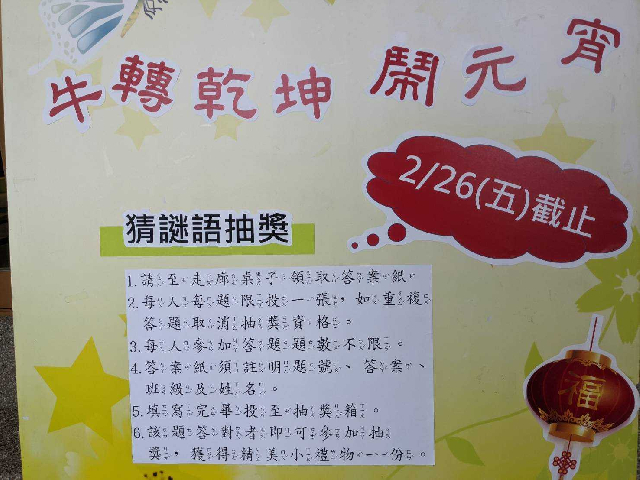 牛轉乾坤 鬧元宵
2/26(五)截止
猜謎語抽獎
1.請至走廊桌子領取答案紙。
2.每人每題限投一張，如重複
答題取消抽獎資格。
3.每人參加答題題數不限。
4.答案紙須註明題號、答案、
班級及姓名。
5.填寫完畢投至抽獎箱。
6.該題答對者即可參加抽
獎，獲得精美小禮物一份。
福